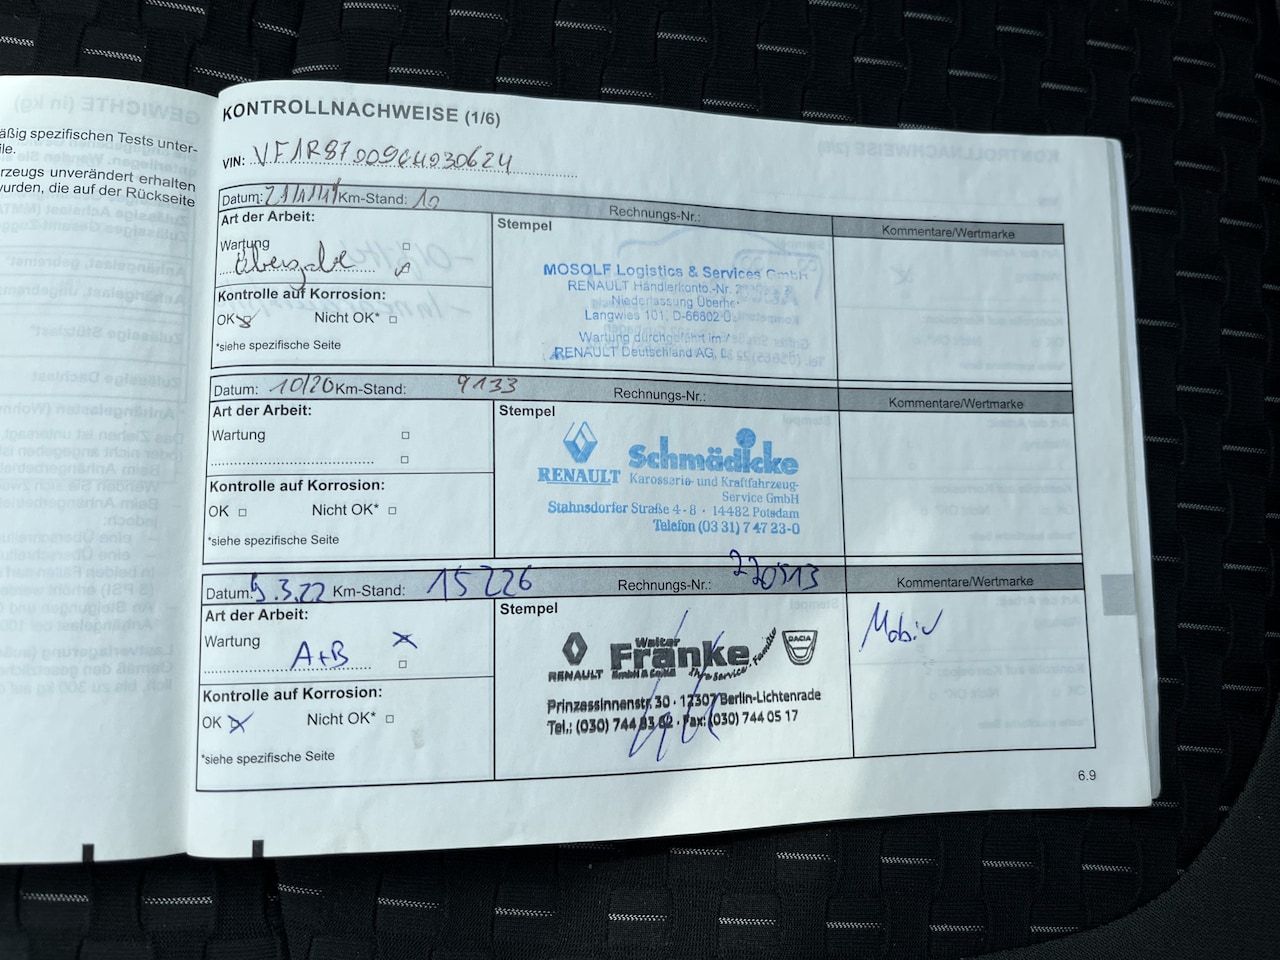 äßig spezifischen Tests unter-
ile.
rzeugs unverändert erhalten
wurden, die auf der Rückseite
KONTROLLNACHWEISE (1/6)
VIN:
Datum: Km-Stand: 10 Rechnungs-Nr.:
Art der Arbeit:
Stempel
Kommentare/Wertmarke
Wartung
Übergabe
Kontrolle auf Korrosion:
OK Nicht OK*
*siehe spezifische Seite
MOSOLF Logistics & Services GmbH
RENAULT Händlerkonto.-Nr.
Niederlassung
Langwies 101, D-66802
Wartung durchgeführt im
RENAULT Deutschland AG,
Datum: 10/20 Km-Stand: 9133 Rechnungs-Nr.:
Art der Arbeit:
Stempel
Kommentare/Wertmarke
Wartung
Kontrolle auf Korrosion:
OK Nicht OK*
*siehe spezifische Seite
RENAULT
Schmädicke
Karosserie- und Kraftfahrzeug-
Service GmbH
Stahnsdorfer Straße 4-8 · 14482 Potsdam
Telefon (03 31) 7 47 23-0
Datum: 3.22 Km-Stand: 15226 Rechnungs-Nr.: 220513
Art der Arbeit:
Stempel
Kommentare/Wertmarke
Wartung
A+B
Kontrolle auf Korrosion:
OK Nicht OK*
*siehe spezifische Seite
RENAULT
Walter
Franke
GmbH & Co KG
Ihre Service-Familie
DACIA
Prinzessinnenstr. 30 · 12307 Berlin-Lichtenrade
Tel.: (030) 744 83 62 · Fax: (030) 744 05 17
6.9